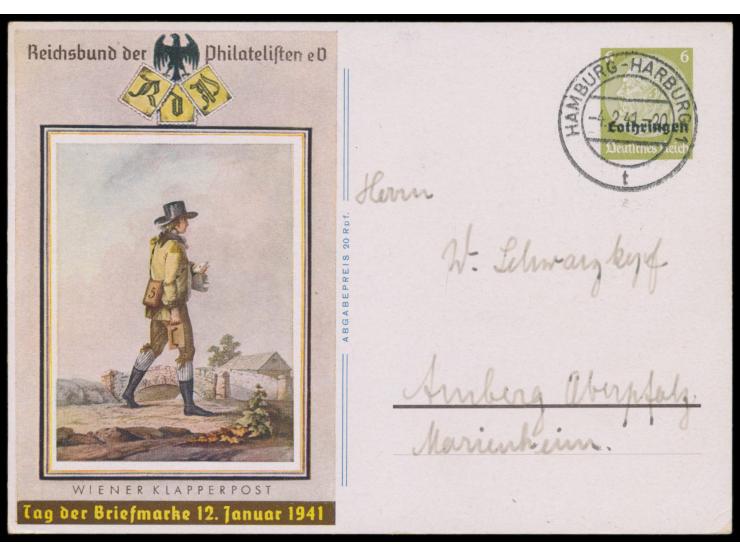 Reichsbund der Philatelisten eV
RdP
WIENER KLAPPERPOST
Tag der Briefmarke 12. Januar 1941
ABGABEPREIS 20 Rpf.
6 6
HAMBURG-HARBURG 1
-4.2.41.-20
Lothringen
Deutsches Reich
t
Herrn
W. Schwarzkopf
Amberg Oberpfalz.
Marienheim.